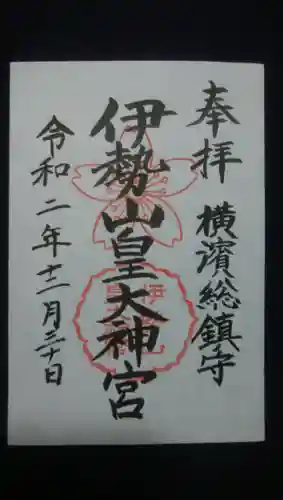 奉拝 横濱総鎮守
伊勢山皇大神宮
令和二年十二月三十日